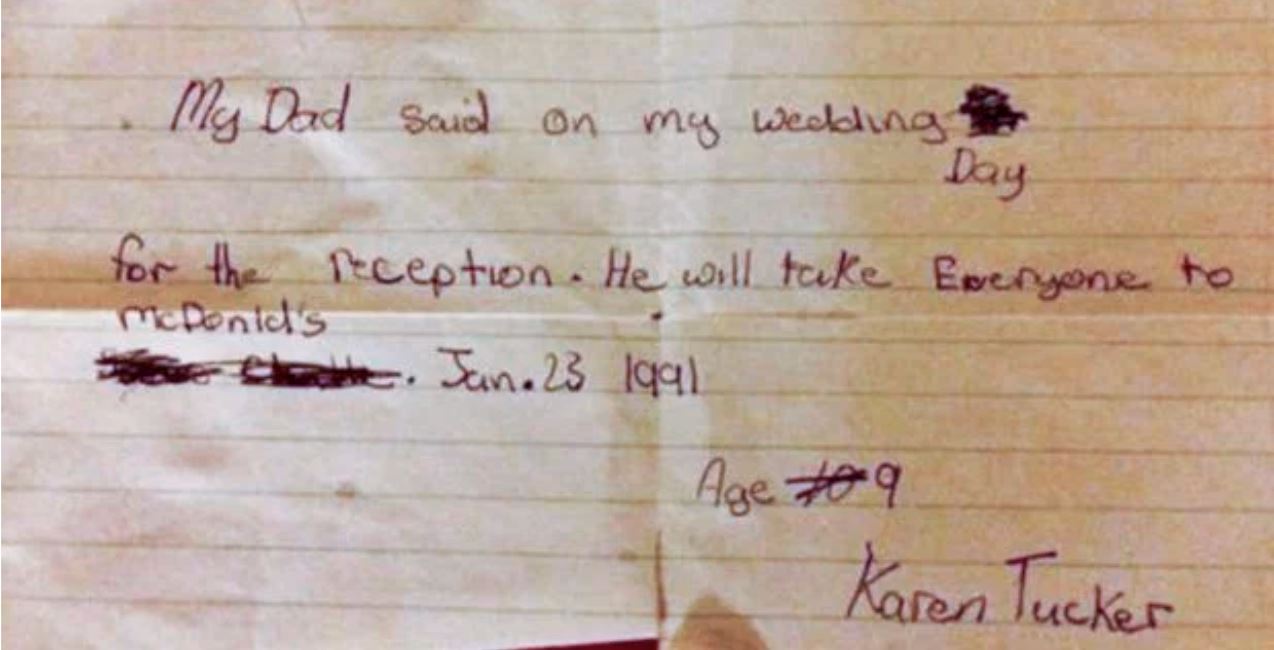 My Dad said on my wedding
Day
for the reception. He will take Everyone to
McDonld's
. Jan.23 1991
Age 10 9
Karen Tucker